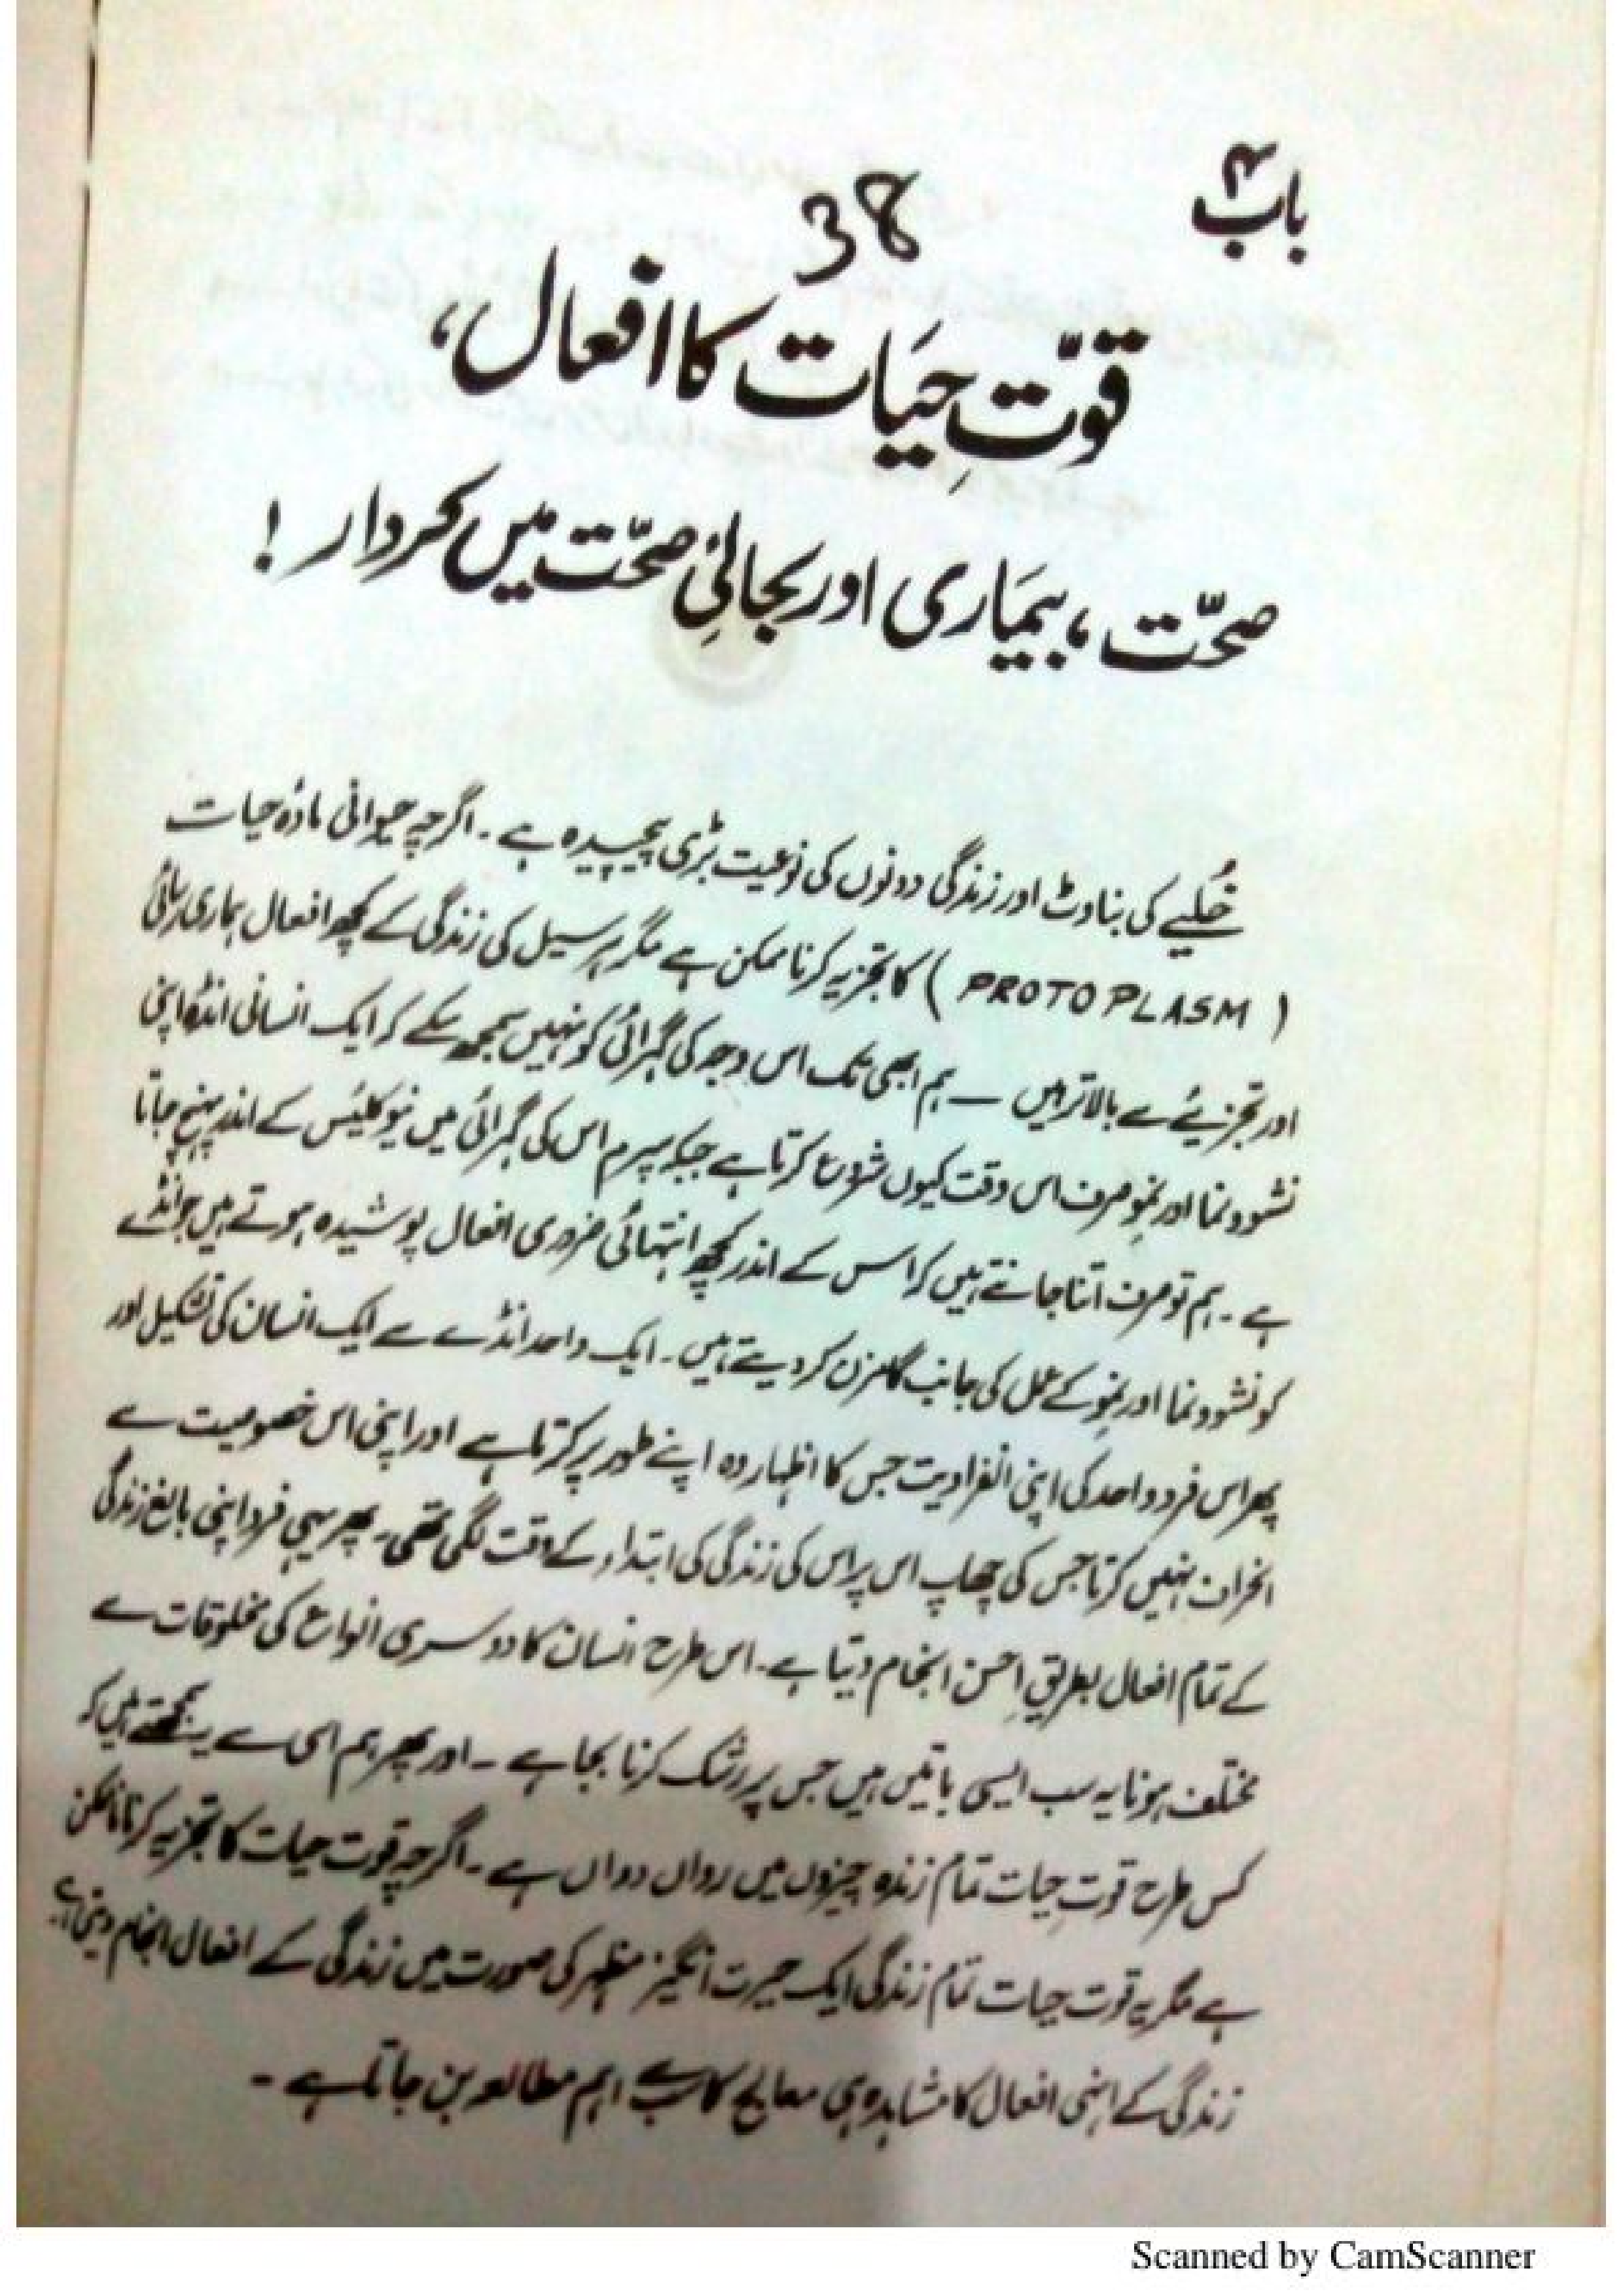 باب ۴
38
قوّتِ حیَات کا افعال،
صحّت، بیمَاری اور بحالیٔ صحّت میں کردار !
خُلیے کی بناوٹ اور زندگی دونوں کی نوعیت بڑی پیچیدہ ہے ۔ اگرچہ حیوانی مادۂ حیات
( PROTOPLASM ) کا تجزیہ کرنا ممکن ہے مگر ہر سیل کی زندگی کے کچھ افعال ہماری رسائی
اور تجزیئے سے بالاتر ہیں ـــ ہم ابھی تک اس وجہ کی گہرائی کو نہیں سمجھ سکے کہ ایک انسانی انڈہ اپنی
نشوونما اور نمو صرف اس وقت کیوں شروع کرتا ہے جبکہ سپرم اس کی گہرائی میں نیوکلیئس کے اندر پہنچ جاتا
ہے ۔ ہم تو صرف اتنا جانتے ہیں کہ اس کے اندر کچھ انتہائی ضروری افعال پوشیدہ ہوتے ہیں جو انڈے
کو نشوونما اور نمو کے عمل کی جانب گامزن کر دیتے ہیں ۔ ایک واحد انڈے سے ایک انسان کی تشکیل اور
پھر اس فردِ واحد کی اپنی انفرادیت جس کا اظہار وہ اپنے طور پر کرتا ہے اور اپنی اس خصوصیت سے
انحراف نہیں کرتا جس کی چھاپ اس پر اس کی زندگی کی ابتداء کے وقت لگی تھی ۔ پھر یہی فرد اپنی بالغ زندگی
کے تمام افعال بطریقِ احسن انجام دیتا ہے ۔ اس طرح انسان کا دوسری انواع کی مخلوقات سے
مختلف ہونا یہ سب ایسی باتیں ہیں جس پر رشک کرنا بجا ہے ۔ اور پھر ہم اسی سے یہ سمجھتے ہیں کہ
کس طرح قوتِ حیات تمام زندہ چیزوں میں رواں دواں ہے ۔ اگرچہ قوت حیات کا تجزیہ کرنا ناممکن
ہے مگر یہ قوت حیات تمام زندگی ایک حیرت انگیز مظہر کی صورت میں زندگی کے افعال انجام دیتی ہے
زندگی کے انہی افعال کا مشاہدہ ہی معالج کا سب سے اہم مطالعہ بن جاتا ہے ۔
Scanned by CamScanner